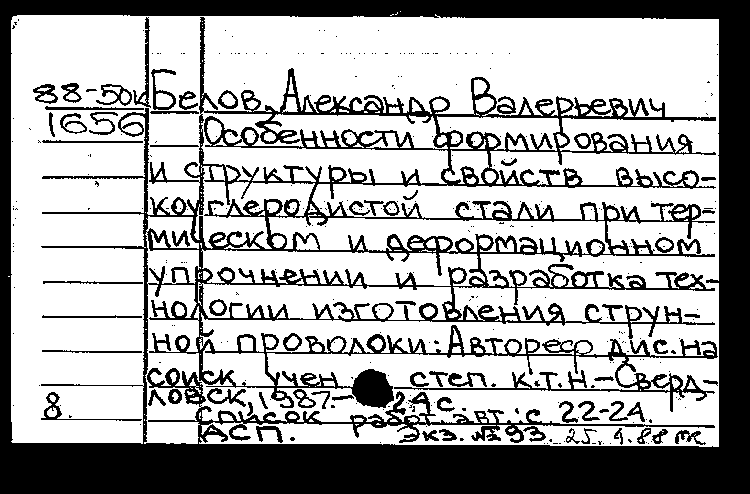 88-50к Белов, Александр Валерьевич
1656 Особенности формирования
и структуры и свойств высо-
коуглеродистой стали при тер-
мическом и деформационном
упрочнении и разработка тех-
нологии изготовления струн-
ной проволоки: Автореф дис. на
соиск. учен степ. к.т.н.-Сверд-
ловск, 1987.- 24 с.
8. Список работ. авт.: с. 22-24.
АСП. Экз. № 93. 25. 4.88